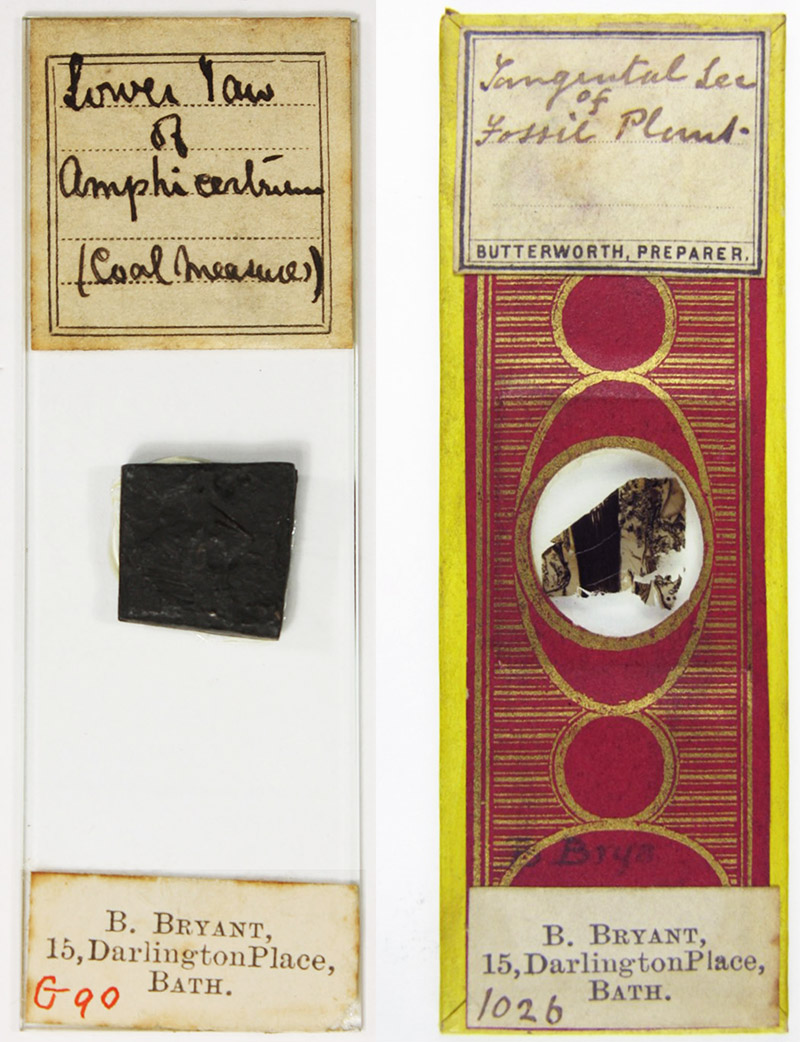 Lower Jaw
of
Amphicentrum
(Coal Measures)
B. BRYANT,
15, Darlington Place,
BATH.
G90
Tangental Sec
of
Fossil Plant.
BUTTERWORTH, PREPARER.
B Brya
B. BRYANT,
15, Darlington Place,
BATH.
1026